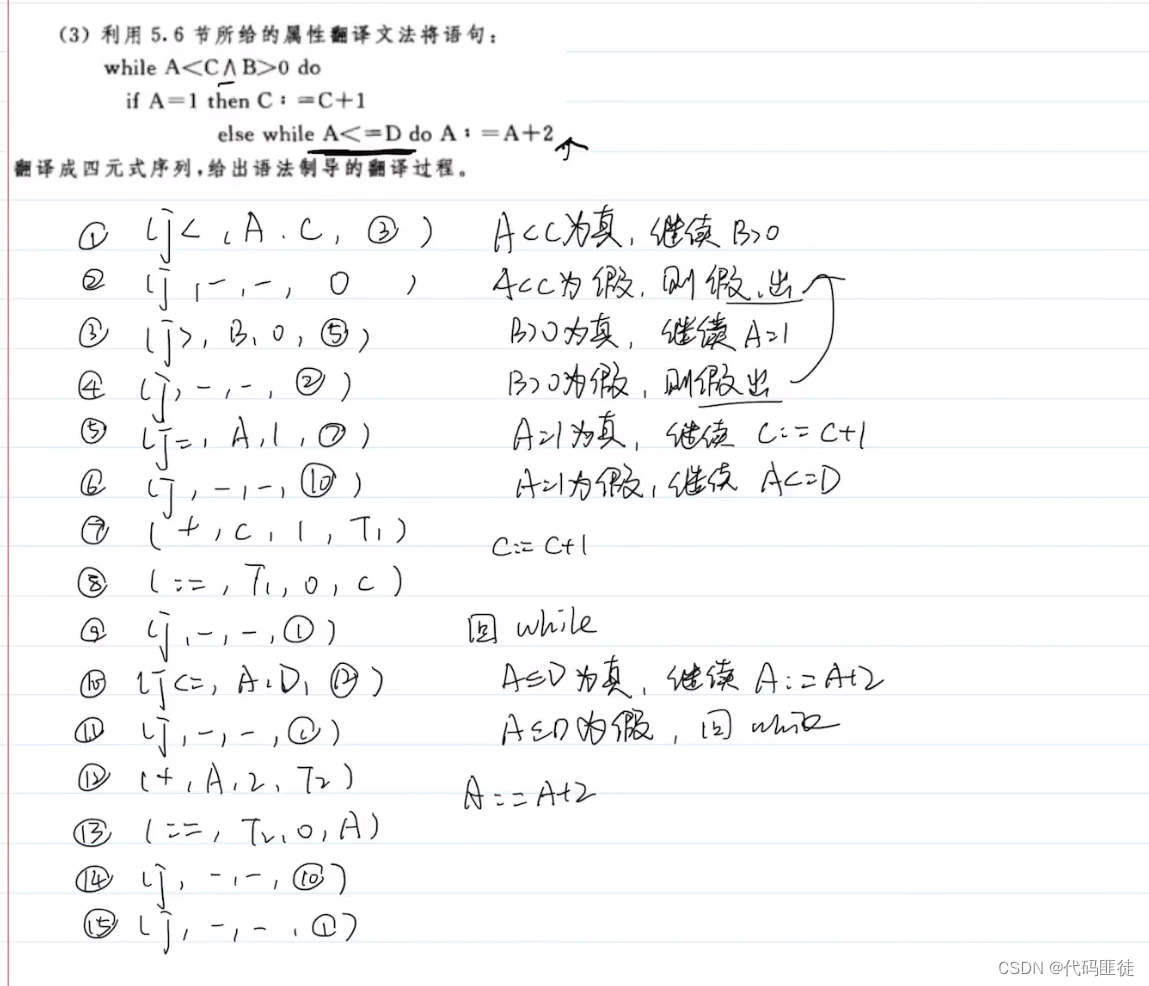 (3) 利用 5.6 节所给的属性翻译文法将语句：
while A<C∧B>0 do
if A=1 then C：=C+1
else while A<=D do A：=A+2
翻译成四元式序列，给出语法制导的翻译过程。
① (j<, A. C, ③) A<C为真, 继续 B>0
② (j, -, -, 0 ) A<C为假, 则假.出
③ (j>, B, 0, ⑤) B>0为真, 继续 A=1
④ (j, -, -, ②) B>0为假, 则假出
⑤ (j=, A, 1, ⑦) A=1为真, 继续 C:=C+1
⑥ (j, -, -, ⑩) A=1为假, 继续 A<=D
⑦ (+, C, 1, T₁) C:=C+1
⑧ (:=, T₁, 0, C)
⑨ (j, -, -, ①) 回 while
⑩ (j<=, A, D, ⑫) A≤D为真, 继续 A:=A+2
⑪ (j, -, -, ①) A≤D为假, 回 while
⑫ (+, A, 2, T₂) A:=A+2
⑬ (:=, T₂, 0, A)
⑭ (j, -, -, ⑩)
⑮ (j, -, -, ①)
CSDN @代码匪徒